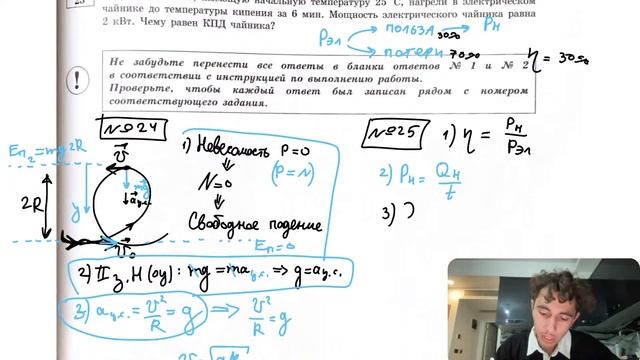 имеющую начальную температуру 25 °С, нагрели в электрическом
чайнике до температуры кипения за 6 мин. Мощность электрического чайника равна
2 кВт. Чему равен КПД чайника?
Pэл
польза 30%
Pн
потери 70%
η = 30%
Не забудьте перенести все ответы в бланки ответов № 1 и № 2
в соответствии с инструкцией по выполнению работы.
Проверьте, чтобы каждый ответ был записан рядом с номером
соответствующего задания.
!
№24
Eп₂=mg2R
v
mg
aц.с.
2R
y
v₀
Eп=0
1) Невесомость P=0
(P=N)
N=0
Свободное падение
2) II з.Н (oy): mg=maц.с. ⇒ g=aц.с.
3) aц.с.= v²/R = g ⇒ v²/R = g
№25
1) η = Pн/Pэл
2) Pн = Qн/t
3)